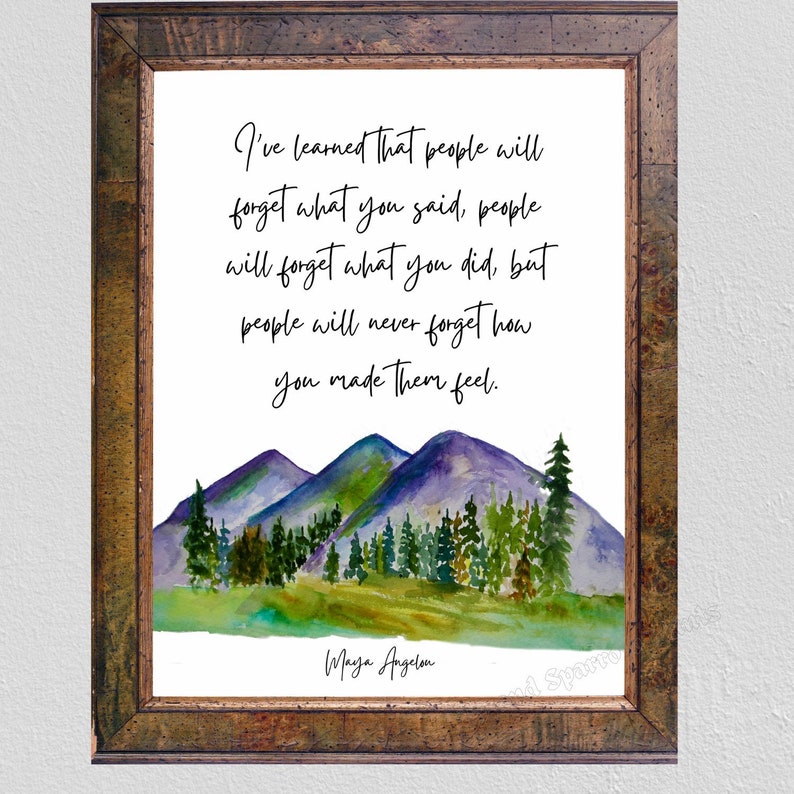 I've learned that people will
forget what you said, people
will forget what you did, but
people will never forget how
you made them feel.
Maya Angelou
nd Sparro